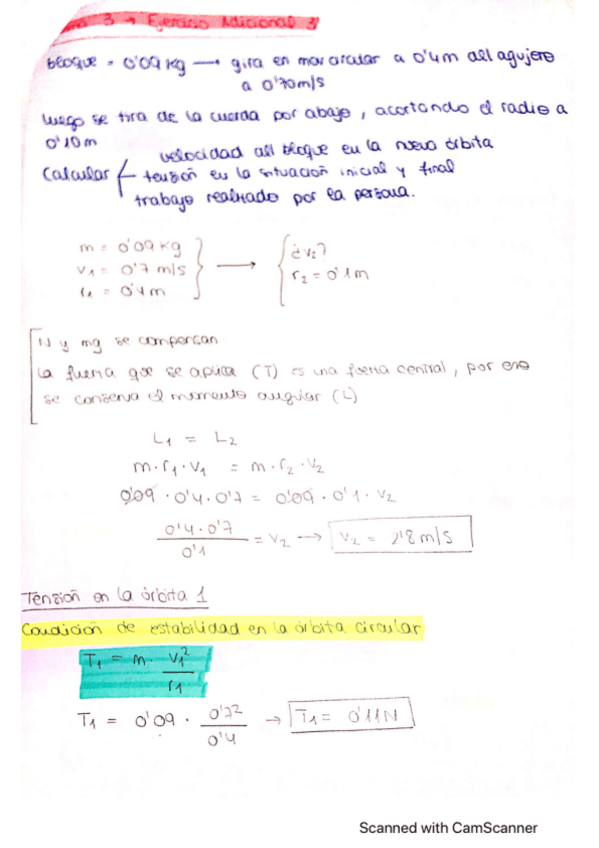 3 → Ejercicio Adicional 3
bloque = 0'09 kg → gira en mov circular a 0'4m del agujero
a 0'70 m/s
Luego se tira de la cuerda por abajo, acortando el radio a
0'10 m
velocidad del bloque en la nueva órbita
Calcular tensión en la situación inicial y final
trabajo realizado por la persona.
m = 0'09 kg
v1 = 0'7 m/s → ¿v2?
r1 = 0'4m r2 = 0'1m
N y mg se compensan
La fuerza que se aplica (T) es una fuerza central, por eso
se conserva el momento angular (L)
L1 = L2
m·r1·v1 = m·r2·v2
0'09 · 0'4 · 0'7 = 0'09 · 0'1 · v2
0'4 · 0'7 / 0'1 = v2 → v2 = 2'8 m/s
Tensión en la órbita 1
Condición de estabilidad en la órbita circular
T1 = m · v1² / r1
T1 = 0'09 · 0'7² / 0'4 → T1 = 0'11 N
Scanned with CamScanner